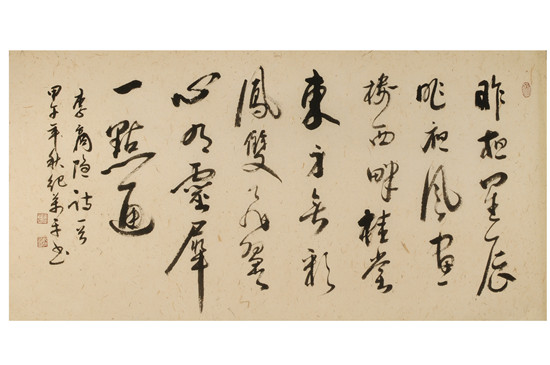 昨夜星辰
昨夜風畫
樓西畔桂堂
東身無彩
鳳雙飛翼
心有靈犀
一點通
李商隐詩一首
甲午年秋紀 平書